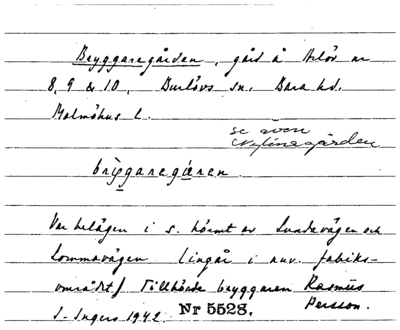 Bryggaregården, gård å Arlöv nr
8, 9 & 10, Burlövs sn. Bara hd.
Malmöhus l.
se även
gården
bryggaregåren
Var belägen i s. hörnet av Lundavägen och
Lommavägen (ingår i nuv. fabriks-
området). Tillhörde bryggaren Rasmus
Persson.
I. Ingers 1942. Nr 5528.